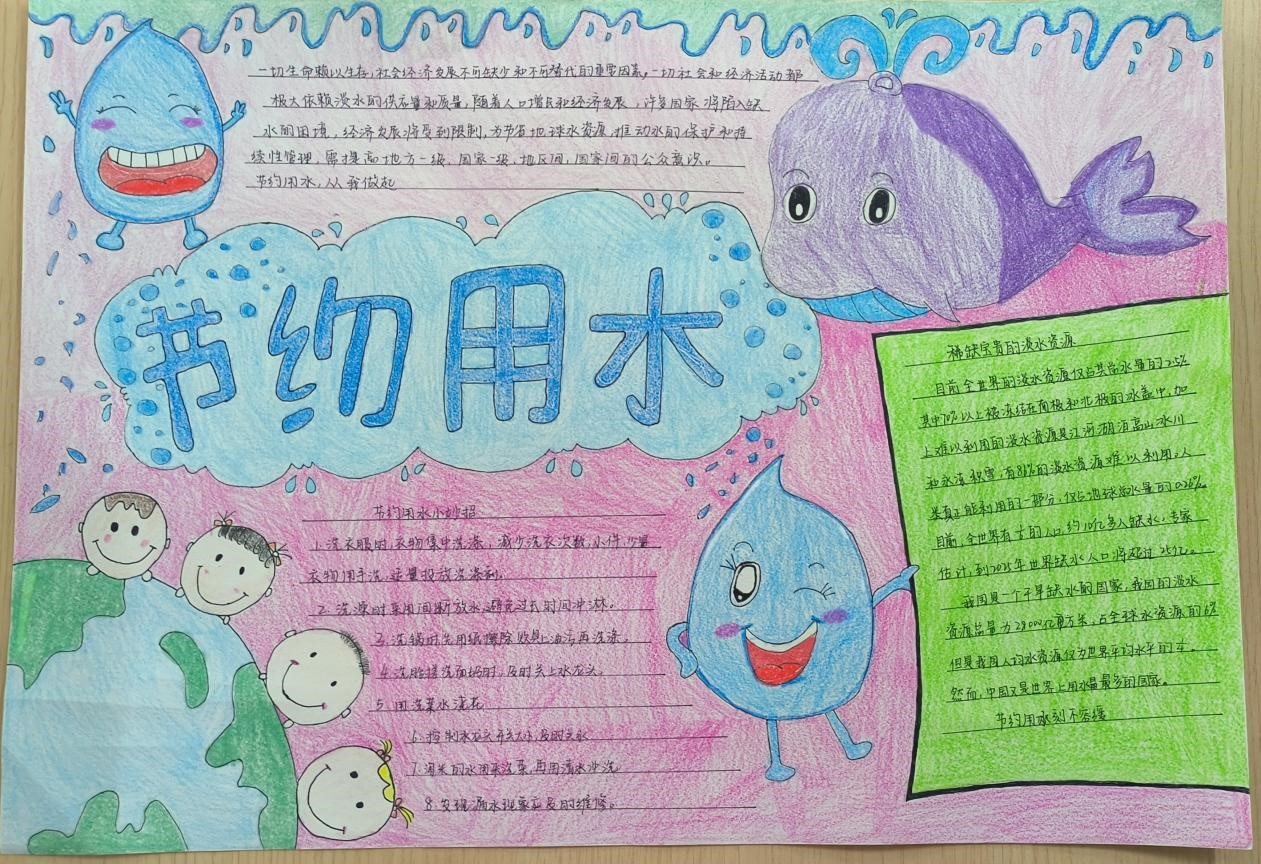 一切生命赖以生存,社会经济发展不可缺少和不可替代的重要因素。一切社会和经济活动都
极大依赖淡水的供应量和质量,随着人口增长和经济发展,许多国家将陷入缺
水的困境,经济发展将受到限制,为节省地球水资源,推动水的保护和持
续性管理,需提高地方一级、国家一级、地区间,国家间的公众意识。
节约用水,从我做起
节约用水
节约用水小妙招
1.洗衣服时,衣物集中洗涤,减少洗衣次数,小件,少量
衣物用手洗,适量投放洗涤剂。
2.洗澡时采用间断放水,避免过长时间冲淋。
3.洗锅时先用纸擦除炊具上油污,再洗涤。
4.洗脸搓洗面奶时,及时关上水龙头。
5.用洗菜水浇花
6.控制水龙头开关大小,及时关水
7.淘米的水用来洗菜,再用清水冲洗
8.发现漏水现象应及时维修。
稀缺宝贵的淡水资源
目前全世界的淡水资源仅占其总水量的2.5%
其中70%以上被冻结在南极和北极的冰盖中,加
上难以利用的淡水资源是江河湖泊高山冰川
和永冻积雪,有86%的淡水资源难以利用。人
类真正能利用的一部分,仅占地球总水量的0.26%。
目前,全世界有 的人口,约10亿多人缺水,专家
估计,到2025年世界缺水人口将超过25亿。
我国是一个干旱缺水的国家,我国的淡水
资源总量为28000亿立方米,占全球水资源的6%
但是我国人均水资源仅为世界平均水平的 。
然而,中国又是世界上用水量最多的国家。
节约用水刻不容缓